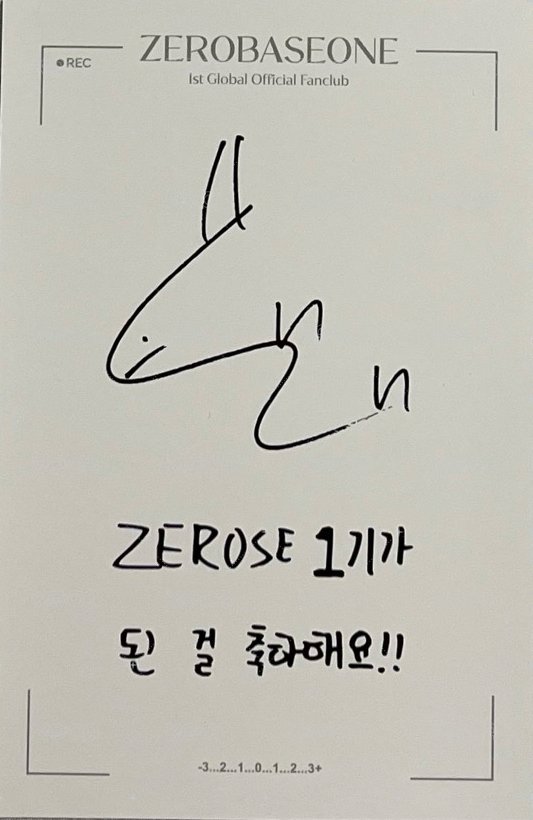 REC
ZEROBASEONE
1st Global Official Fanclub
ZEROSE 1기가
된 걸 축하해요!!
-3...2...1...0...1...2...3+